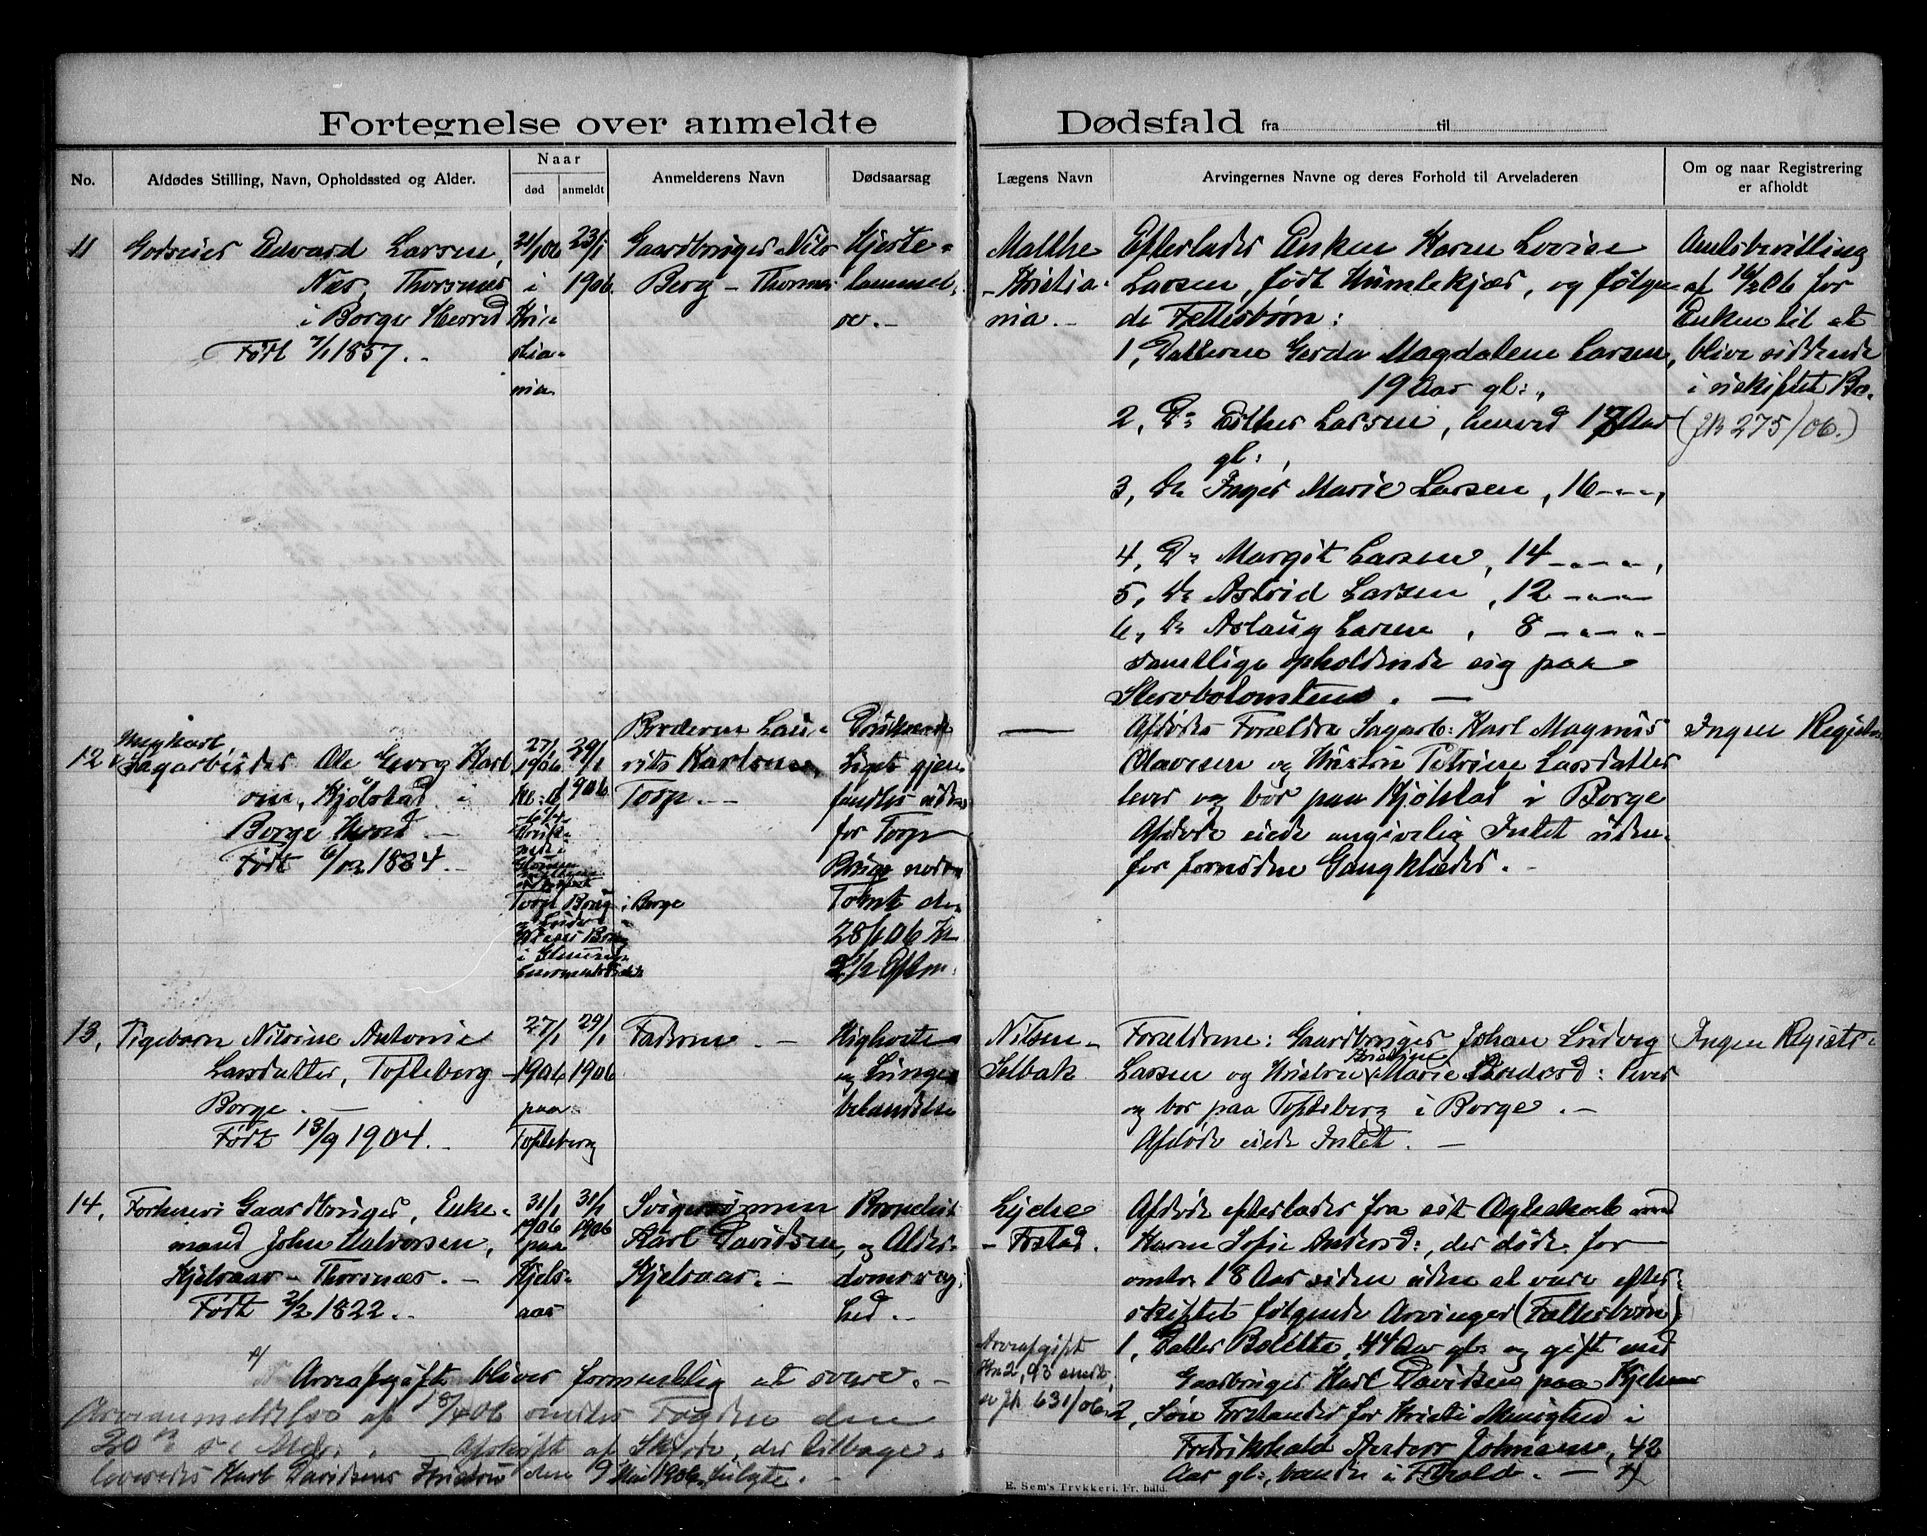 Fortegnelse over anmeldte Dødsfald fra til
No.
Afdødes Stilling, Navn, Opholdssted og Alder.
Naar
død
anmeldt
Anmelderens Navn
Dødsaarsag
Lægens Navn
Arvingernes Navne og deres Forhold til Arveladeren
Om og naar Registrering
er afholdt
11
Godseier Edvard Larsen,
Næs, Thorsnes
i Borge Herred
Født 7/1 1857.
21/1 06
i
Kri-
stia-
nia
23/1
1906.
Gaardbruger Nils
Berg - Thorsnes
Hjerte-
lammel-
se.
Malthe
- Kristia-
nia.
Efterlader Enken Karen Lovise
Larsen, født Humlekjær, og følgen-
de Fællesbørn:
1, Datteren Gerda Magdalene Larsen,
19 Aar gl:,
2, Do Esther Larsen, henved 17 Aar
gl:,
3, Do Inger Marie Larsen, 16 - " - ,
4, Do Margit Larsen, 14 - " - " - ,
5, Do Astrid Larsen, 12 - " - " -
6, Do Aslaug Larsen, 8 - " - " -
samtlige opholdende sig paa
Stervbotomten.
Amtsbevilling
af 16/2 06 for
Enken til at
blive siddende
i uskiftet Bo.
(JN 275/06.)
12
Ungkarl
Sagarbeider Ole Georg Karl-
sen, Kjølstad i
Borge Herred
Født 6/12 1884.
27/1
1906
29/1
1906
Torp Brug i Borge
Broderen Lau-
rits Karlsen,
Torp.
Druknede
Liget gjen-
fandtes uden-
for Torp
Brug neden
Tomt den
28/1 06 Kl
2 1/2 Efterm.
Afdødes Forældre Sagarb: Karl Magnus
Olavesen og Hustru Petrine Larsdatter
lever og bor paa Kjølstad i Borge
Afdøde eiede angivelig Intet uden-
for fornødne Gangklæder.
Ingen Registr.
13,
Pigebarn Nilsine Antonie
Larsdatter, Tofteberg
Borge.
Født 13/9 1904.
27/1
1906
paa
Tofteberg
29/1
1906
Faderen.
Kighoste
og Lunge-
betændelse
Nilsen -
Selbak
Forældrene: Gaardbruger Johan Ludvig
Larsen og Hustru Marie Andersd: lever
og bor paa Tofteberg i Borge.
Afdøde eiede Intet.
Ingen Registr.
14,
Forhenv: Gaardbruger, Enke-
mand John Halvorsen,
Kjelsaas - Thorsnæs.
Født 2/2 1822.
31/1
1906
paa
Kjels-
aas
31/1
1906
Svigersønnen
Karl Davidsen,
Kjelsaas.
Bronchit
og Alder-
domssvag-
hed.
Lyche
- Frstad.
Afdøde efterlader fra sit Ægteskab med
Karen Sofie Andersd:, der døde for
omtr. 18 Aar siden uden at være efter-
skiftet følgende Arvinger (Fællesbørn):
1, Datter Bolette, 44 Aar gl: og gift med
Gaardbruger Karl Davidsen paa Kjelsaas
2, Søn Forstander for Kristi Menighed i
Fredrikshald Anders Johnsen, 42
Aar gl:, boende i Frhald.
Arveafgift
Kr 2,93 sendt,
se JN 631/06.
Arveafgift bliver formentlig at svare.
Arveanmeldelse af 8/4 06 sendtes Fogden den
20de s: Md:. Afskift af Skjøde, der tilbage-
leveredes Karl Davidsens Hustru den 9 Mai 1906, fulgte.
E. Sem's Trykkeri. Fr. hald.